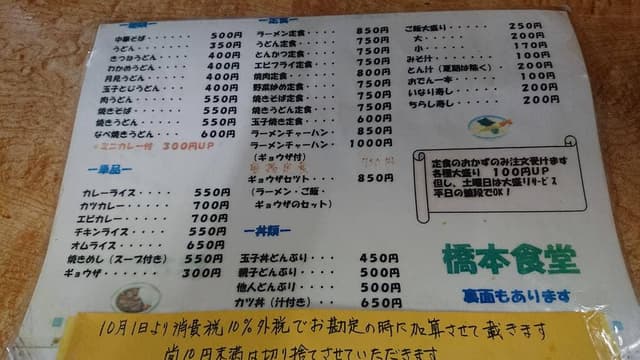 中華そば・・・・500円
うどん・・・・・350円
きつねうどん・・・400円
わかめうどん・・・400円
月見うどん・・・・400円
玉子とじうどん・・400円
肉うどん・・・・・550円
焼きそば・・・・・550円
焼きうどん・・・・550円
なべ焼きうどん・・600円
・ミニカレー付 300円UP
ー単品ー
カレーライス・・・・550円
カツカレー・・・・・700円
エビカレー・・・・・700円
チキンライス・・・・550円
オムライス・・・・・650円
焼きめし(スープ付き)550円
ギョウザ・・・・・・300円
ー定食ー
ラーメン定食・・・・850円
うどん定食・・・・・750円
とんかつ定食・・・・750円
エビフライ定食・・・750円
焼肉定食・・・・・・800円
野菜炒め定食・・・・750円
焼きそば定食・・・・750円
焼きうどん定食・・・750円
玉子焼き定食・・・・600円
ラーメンチャーハン・・850円
ラーメンチャーハン・・1000円
(ギョウザ付)
750円
ギョウザセット・・・850円
(ラーメン・ご飯・
ギョウザのセット)
ー丼類ー
玉子丼どんぶり・・・450円
親子どんぶり・・・・500円
他人どんぶり・・・・500円
カツ丼(汁付き)・・650円
ご飯大盛り・・・・・250円
大・・・・・・200円
小・・・・・・170円
みそ汁・・・・・・100円
とん汁(夏期は除く)・200円
おでん一本・・・・・100円
いなり寿し・・・・・200円
ちらし寿し・・・・・200円
定食のおかずのみ注文受けます
各種大盛り 100円UP
但し、土曜日は大盛りサービス
平日の値段でOK!
橋本食堂
裏面もあります
10月1日より消費税10%外税でお勘定の時に加算させて戴きます
尚10円未満は切り捨てさせていただきます